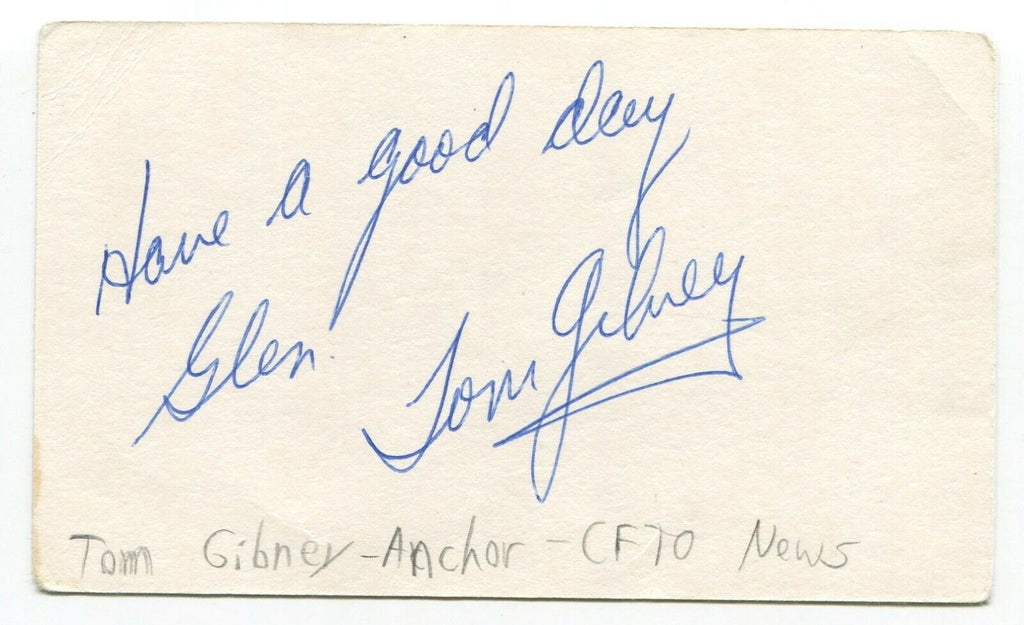 Have a good day
Glen!
Tom Gibney
Tom Gibney - Anchor - CFTO News